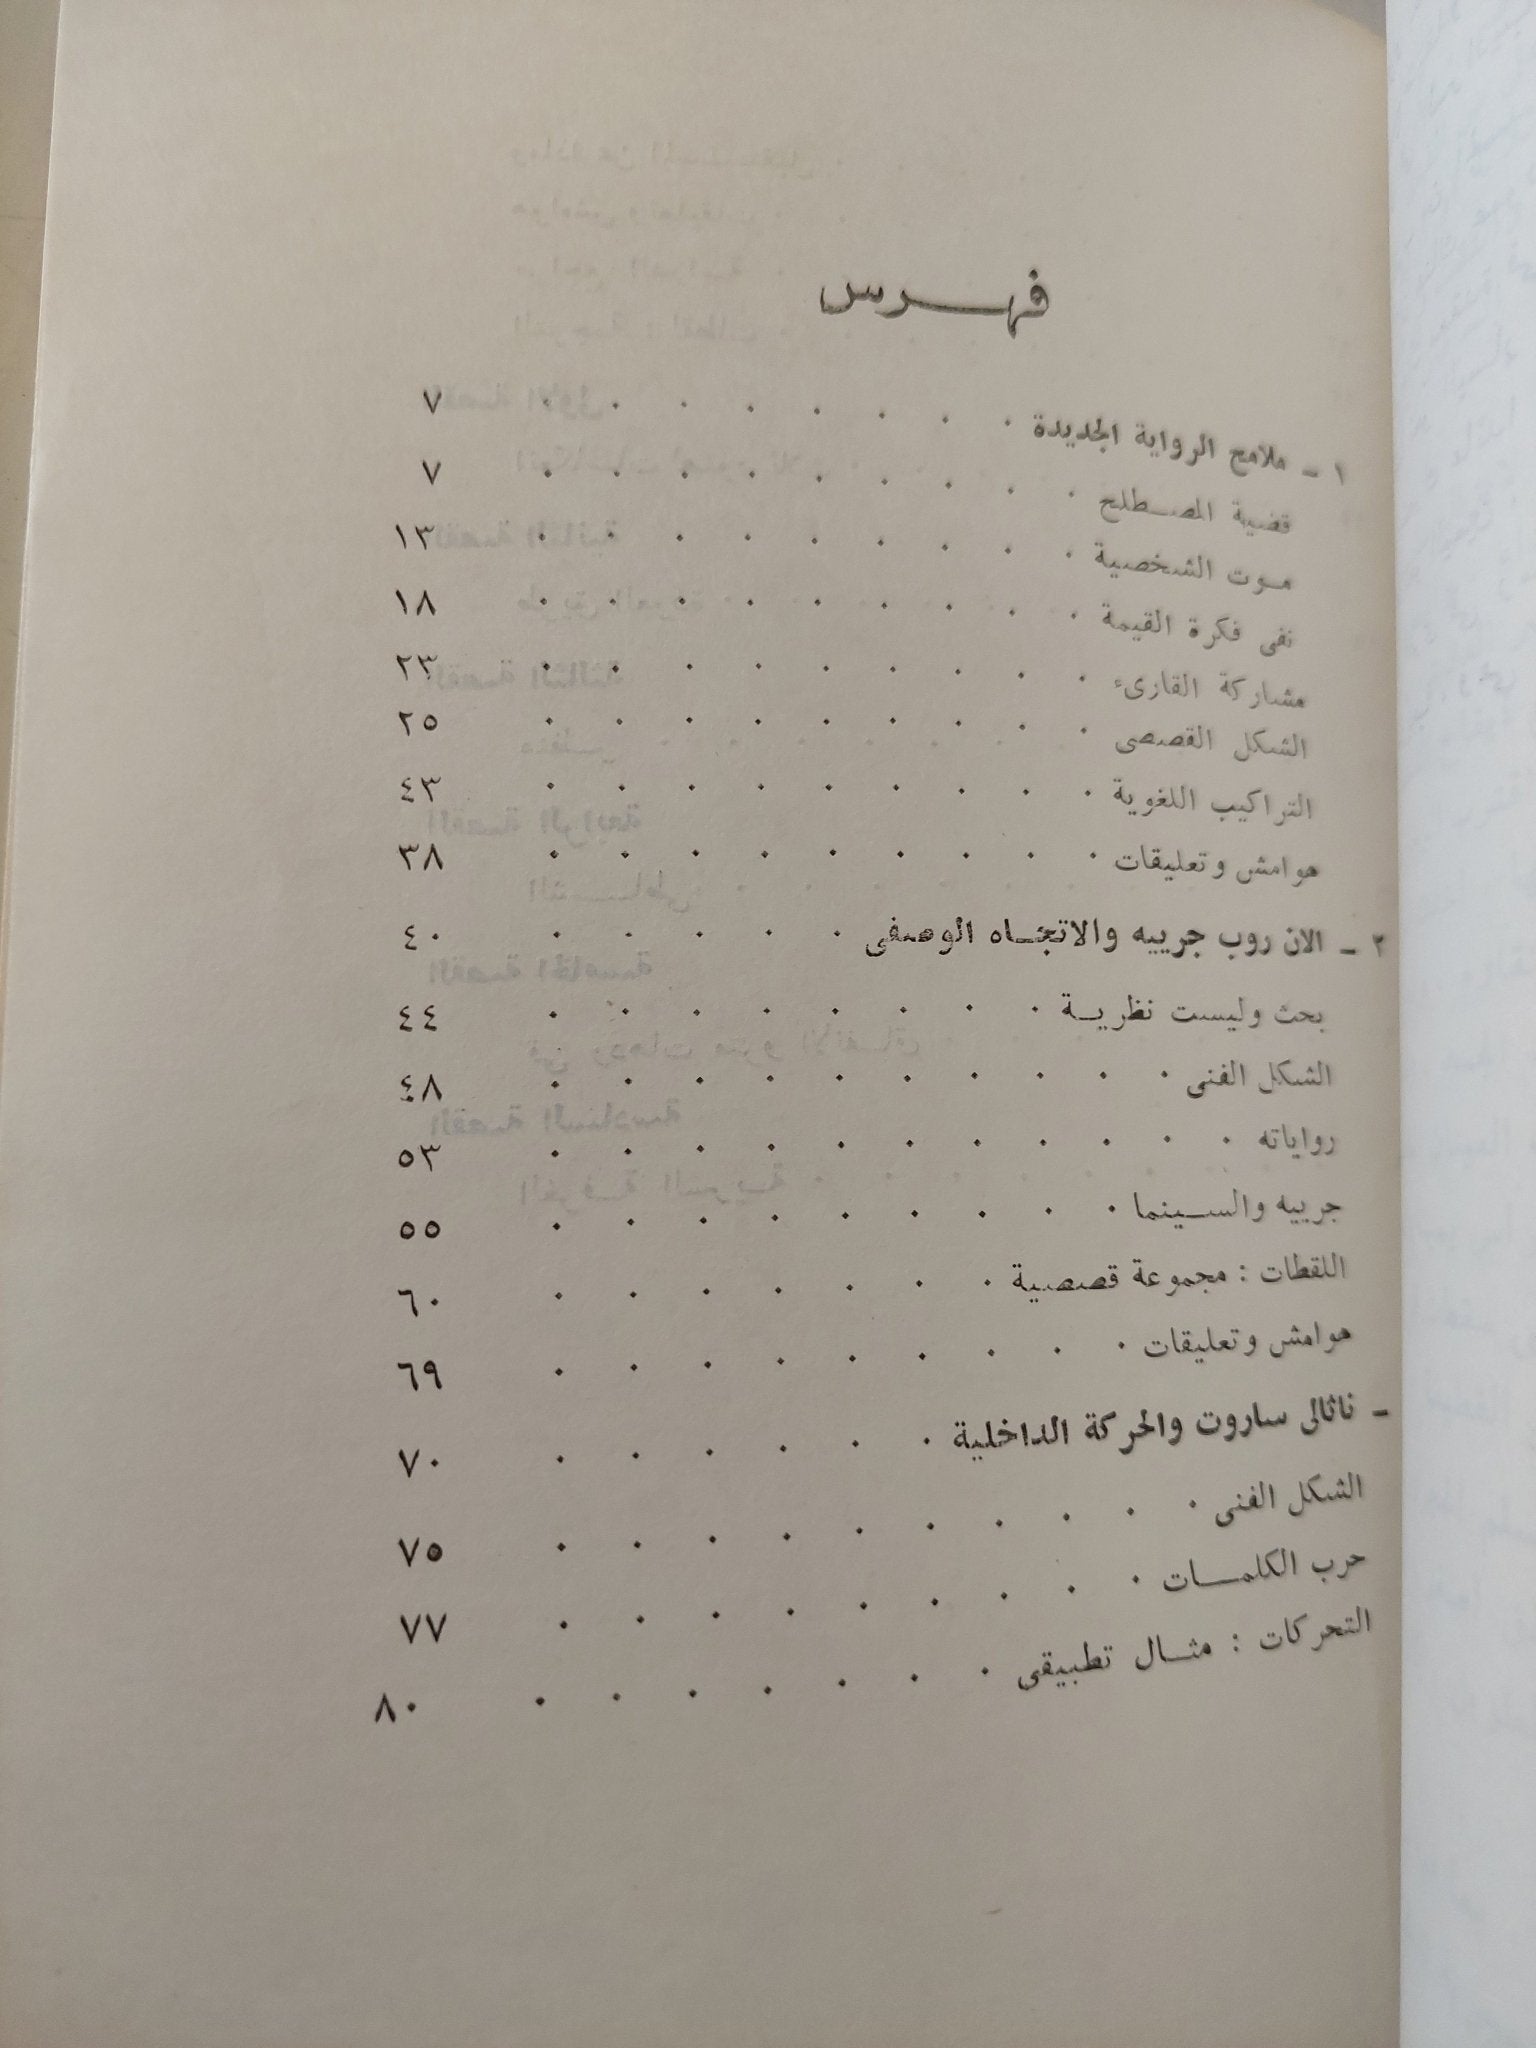 فهرس
١ - ملامح الرواية الجديدة ٧
قضية المصطلح ٧
موت الشخصية ١٣
نفى فكرة القيمة ١٨
مشاركة القارىء ٢٣
الشكل القصصى ٢٥
التراكيب اللغوية ٤٣
هوامش وتعليقات ٣٨
٢ - الان روب جرييه والاتجاه الوصفى ٤٠
بحث وليست نظرية ٤٤
الشكل الفنى ٤٨
رواياته ٥٣
جرييه والسينما ٥٥
اللقطات : مجموعة قصصية ٦٠
هوامش وتعليقات ٦٩
- ناتالى ساروت والحركة الداخلية ٧٠
الشكل الفنى ٧٥
حرب الكلمات ٧٧
التحركات : مثال تطبيقى ٨٠